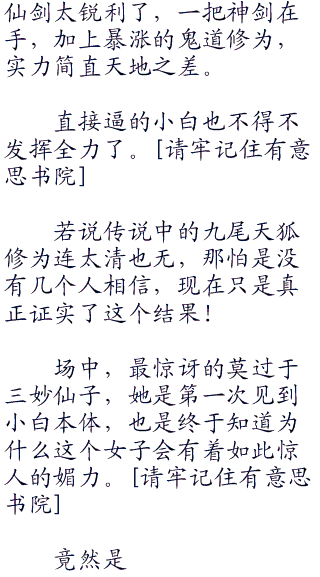 仙剑太锐利了，一把神剑在
手，加上暴涨的鬼道修为，
实力简直天地之差。
直接逼的小白也不得不
发挥全力了。[请牢记住有意
思书院]
若说传说中的九尾天狐
修为连太清也无，那怕是没
有几个人相信，现在只是真
正证实了这个结果！
场中，最惊讶的莫过于
三妙仙子，她是第一次见到
小白本体，也是终于知道为
什么这个女子会有着如此惊
人的媚力。[请牢记住有意思
书院]
竟然是